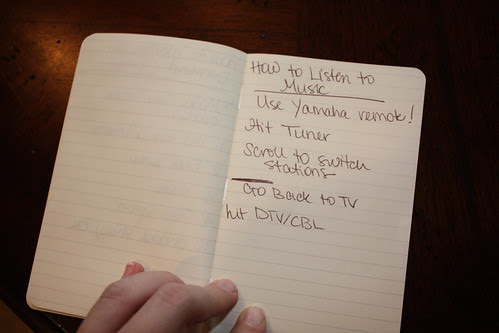 How to Listen to
Music
Use Yamaha remote!
Hit Tuner
Scroll to switch
stations
Go Back to TV
hit DTV/CBL